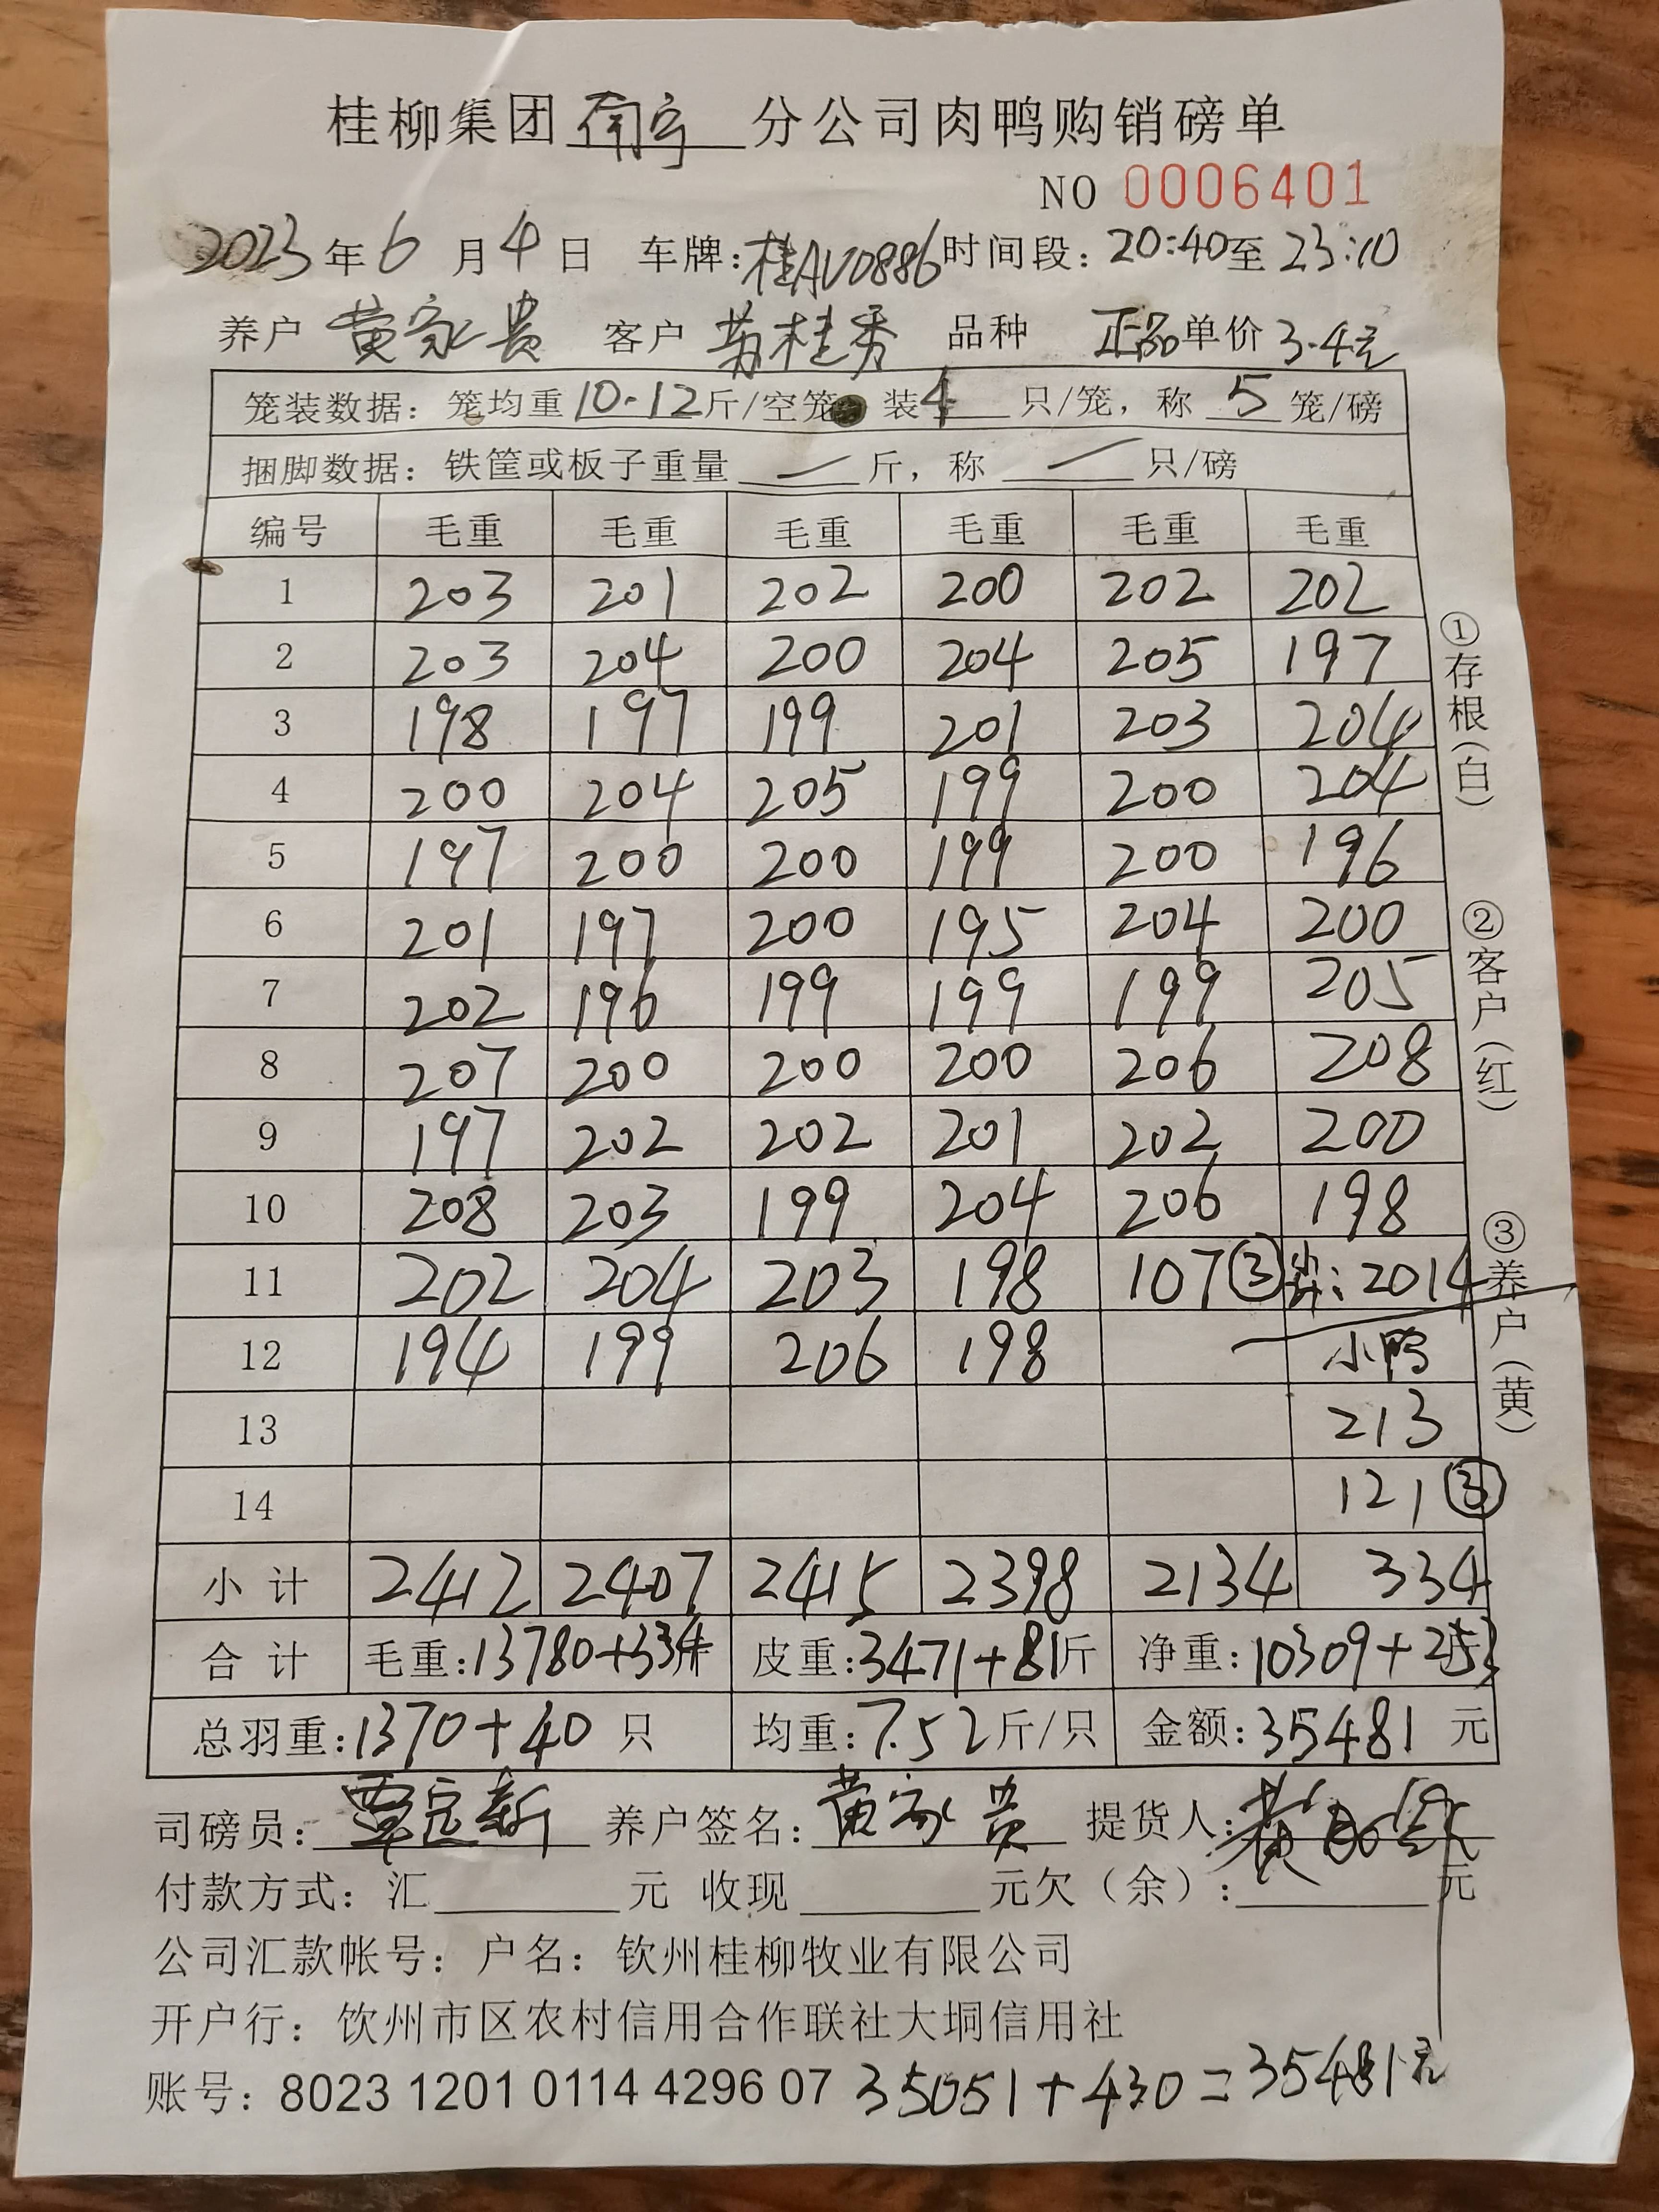 桂柳集团南宁分公司肉鸭购销磅单
NO 0006401
2023年6月4日 车牌:桂AV0886时间段:20:40至23:10
养户 黄家贵 客户 苏桂秀 品种 正品单价3.4元
笼装数据:笼均重10.12斤/空笼 装4只/笼,称5笼/磅
捆脚数据:铁筐或板子重量 — 斤,称 — 只/磅
编号 毛重 毛重 毛重 毛重 毛重 毛重
1 203 201 202 200 202 202
2 203 204 200 204 205 197
3 198 197 199 201 203 204
4 200 204 205 199 200 204
5 197 200 200 199 200 196
6 201 197 200 195 204 200
7 202 196 199 199 199 205
8 207 200 200 200 206 208
9 197 202 202 201 202 200
10 208 203 199 204 206 198
11 202 204 203 198 107③ :2014
12 194 199 206 198 小鸭
13 213
14 121③
小计 2412 2407 2415 2398 2134 334
合计 毛重:13780+334斤 皮重:3471+81斤 净重:10309+253斤
总羽重:1370+40只 均重:7.52斤/只 金额:35481元
司磅员:覃定新 养户签名:黄家贵 提货人:黄
付款方式:汇 元 收现 元欠(余): 元
公司汇款帐号:户名:钦州桂柳牧业有限公司
开户行:饮州市区农村信用合作联社大垌信用社
账号:8023 1201 0114 4296 07 35051+430=35481元
①存根(白)
②客户(红)
③养户(黄)